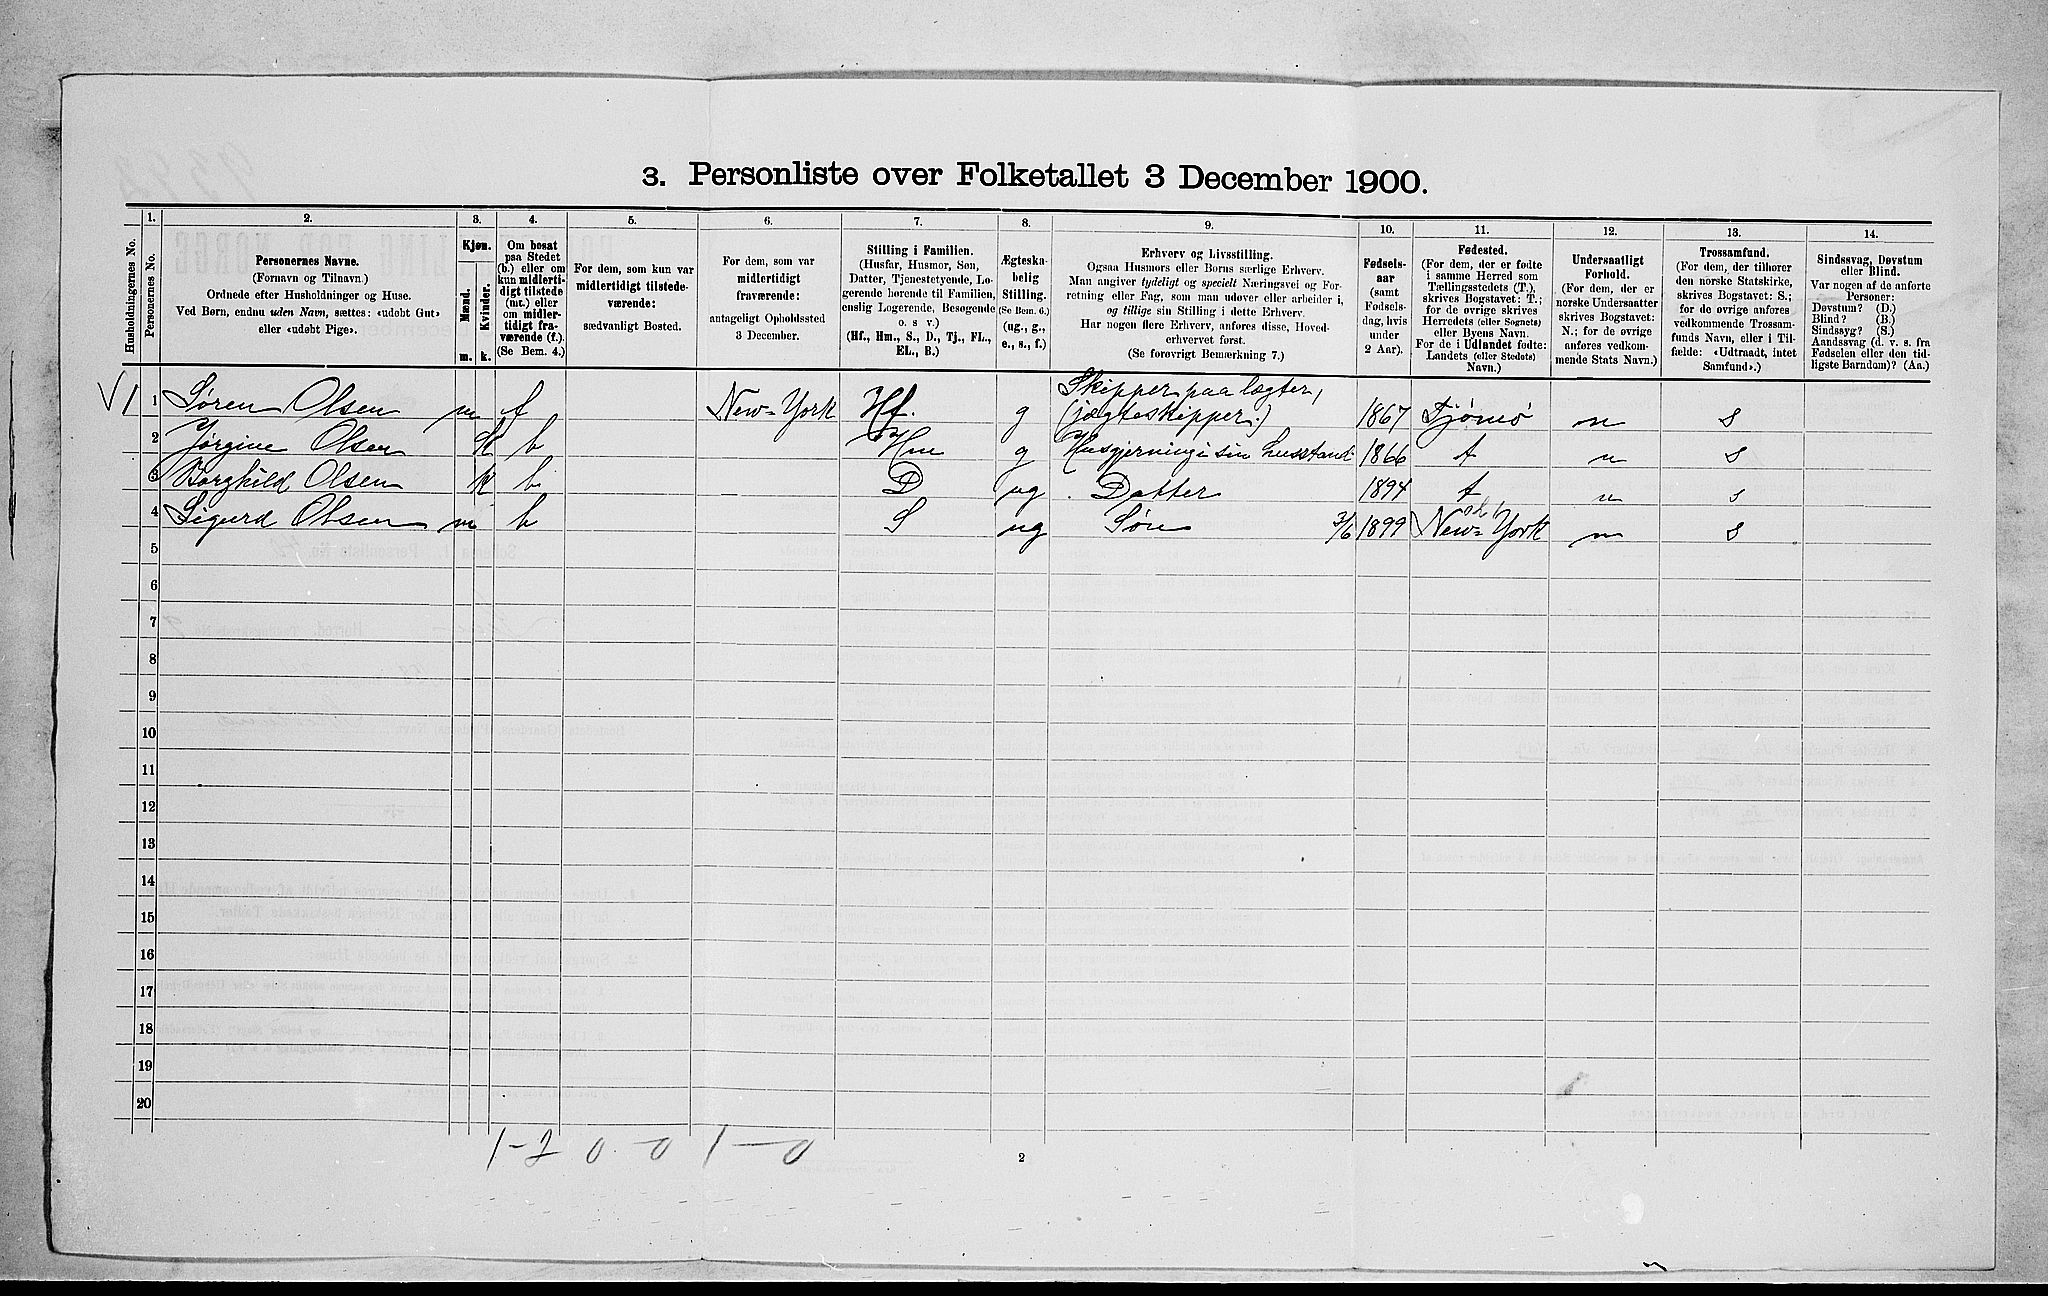 3. Personliste over Folketallet 3 December 1900.
Husholdningernes No.
1.
Personernes No.
2.
Personernes Navne.
(Fornavn og Tilnavn.)
Ordnede efter Husholdninger og Huse.
Ved Børn, endnu uden Navn, sættes: «udøbt Gut»
eller «udøbt Pige».
3.
Kjøn.
Mænd.
Kvinder.
m.
k.
4.
Om bosat
paa Stedet
(b.) eller om
kun midlerti-
digt tilstede
(mt.) eller
om midler-
tidigt fra-
værende (f.).
(Se Bem. 4.)
5.
For dem, som kun var
midlertidigt tilstede-
værende:
sædvanligt Bosted.
6.
For dem, som var
midlertidigt
fraværende:
antageligt Opholdssted
3 December.
7.
Stilling i Familien.
(Husfar, Husmor, Søn,
Datter, Tjenestetyende, Lo-
gerende hørende til Familien,
enslig Logerende, Besøgende
o. s v.)
(Hf., Hm., S., D., Tj., FL.,
EL., B.)
8.
Ægteska-
belig
Stilling.
(Se Bem. 6.)
(ug., g.,
e., s., f.)
9.
Erhverv og Livsstilling.
Ogsaa Husmors eller Børns særlige Erhverv.
Man angiver tydeligt og specielt Næringsvei og For-
retning eller Fag, som man udøver eller arbeider i,
og tillige sin Stilling i dette Erhverv.
Har nogen flere Erhverv, anføres disse, Hoved-
erhvervet først.
(Se forøvrigt Bemærkning 7.)
10.
Fødsels-
aar
(samt
Fødsels-
dag, hvis
under
2 Aar).
11.
Fødested.
(For dem, der er fødte
i samme Herred som
Tællingsstedets (T.),
skrives Bogstavet: T.;
for de øvrige skrives
Herredets (eller Sognets)
eller Byens Navn.
For de i Udlandet fødte:
Landets (eller Stedets)
Navn.)
12.
Undersaatligt
Forhold.
(For dem, der er
norske Undersaatter
skrives Bogstavet:
N.; for de øvrige
anføres vedkom-
mende Stats Navn.)
13.
Trossamfund.
(For dem, der tilhører
den norske Statskirke,
skrives Bogstavet: S.;
for de øvrige anføres
vedkommende Trossam-
funds Navn, eller i Til-
fælde: «Udtraadt, intet
Samfund».)
14.
Sindssvag, Døvstum
eller Blind.
Var nogen af de anførte
Personer:
Døvstum? (D.)
Blind? (B.)
Sindssyg? (S.)
Aandssvag (d. v. s. fra
Fødselen eller den tid-
ligste Barndom)? (Aa.)
1 1 Søren Olsen m f New-York Hf. g Skipper paa lægter, (jægteskipper.) 1867 Tjømø n s
2 Jørgine Olsen k b Hm g Husgjerning i sin husstand 1866 t n s
3 Borghild Olsen k b D ug. Datter 1894 t n s
4 Sigurd Olsen m b S ug Søn 3/6 1899 New-York n s
5
6
7
8
9
10
11
12
13
14
15
16
17
18
19
20
1-2 0 0 1-0
2